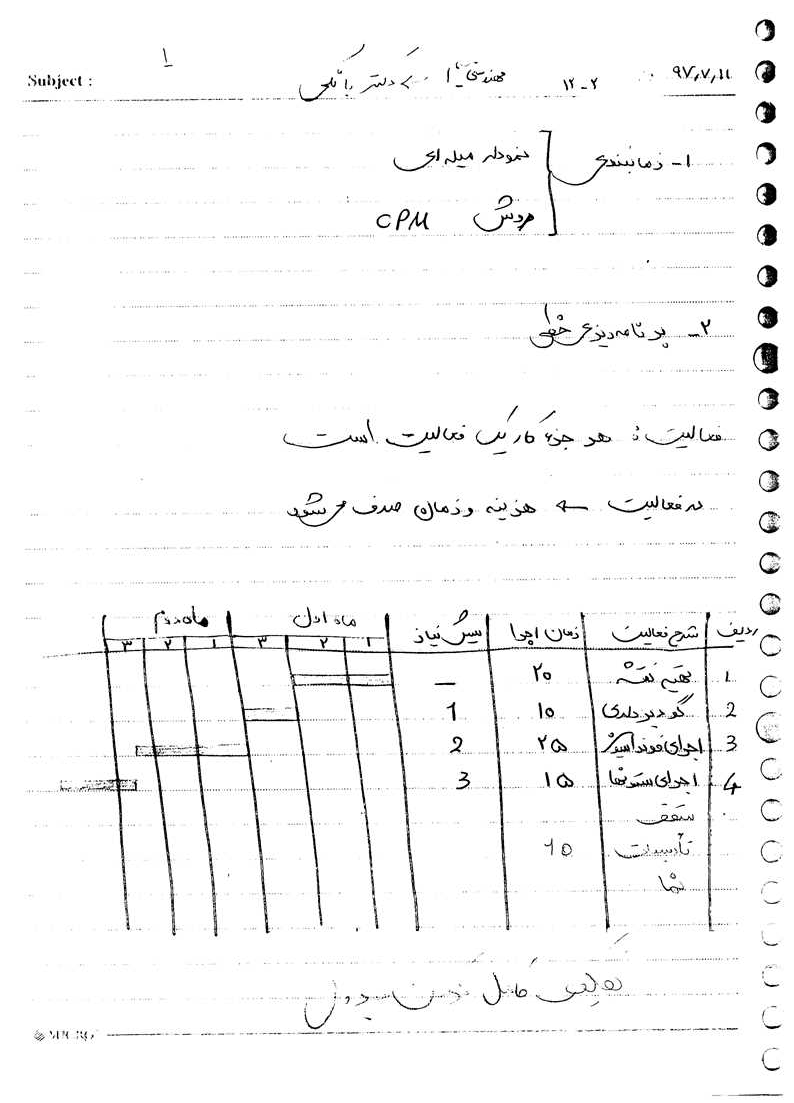 ۱
Subject :
۹۷٫۷٫۱۱ ۲-۱۲ مهندسی سیستم ۱ دکتر
۱- زمانبندی
نمودار میله ای
روش CPM
۲- برنامه ریزی خطی
فعالیت : هر جزء کار یک فعالیت است
در فعالیت ← هزینه و زمان صرف می شود
ردیف شرح فعالیت زمان اجرا پیش نیاز ماه اول ماه دوم
۱ ۲ ۳ ۱ ۲ ۳
۱ تهیه نقشه ۲۰ —
2 گودبرداری ۱۰ 1
3 اجرای فونداسیون ۲۵ 2
4 اجرای ستونها ۱۵ 3
سقف
تأسیسات 10
نما
کامل کردن جدول